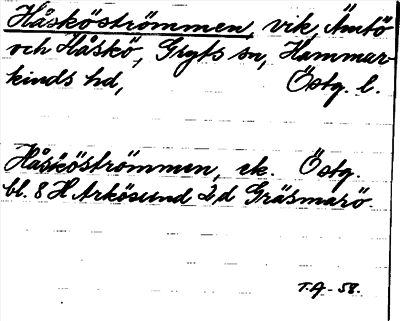 Håsköströmmen, vik, Ämtö
och Håskö, Gryts sn, Hammar-
kinds hd, Östg. l.
Håsköströmmen, ek. Östg.
bl. 8 H Arkösund 2 d Gräsmarö.
T.A. - 58.